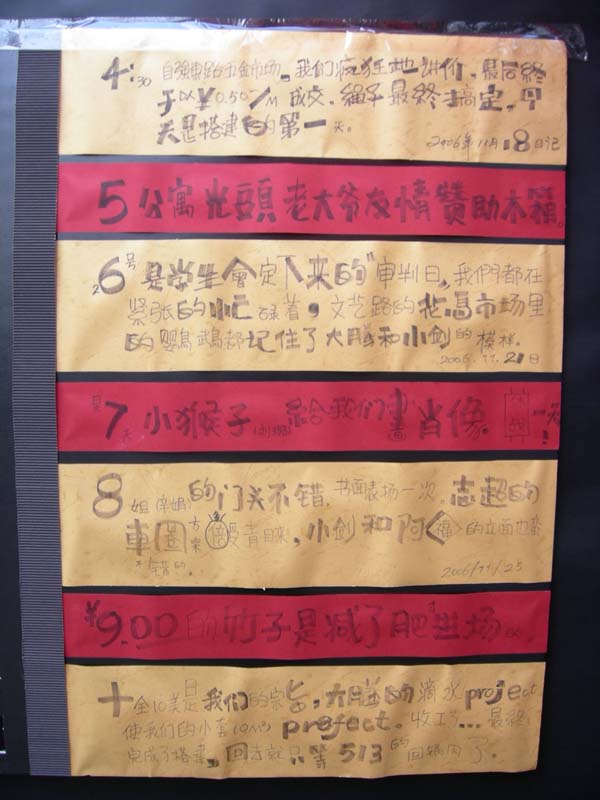 4:30 自強東路五金市场。我们疯狂地讲价，最后終
于以￥0.50/M成交。繩子最終搞定，
天是搭建的第一天。
2006年11月18日记
5公寓光頭老大爷友情贊助木箱。
26号是学生會定下来的"审判日，我們都在
紧张的忙碌着，文艺路的花鳥市场里
的鹦鵡鳥都记住了大勝和小剑的模样。
2006.11.21日
7天小猴子給我们畫肖像。
8姐的门头不错，书面表扬一次。志超的
車圈方案倍受青目来，小剑和阿福的立面也蛮
不错的。
2006/11/25
￥9.00的竹子是减了肥才进场
十全10美是我们的宗旨，大勝的滴水project
使我们的小套 prefect。收工了...最終
完成了搭建，回去就只等513的回锅肉了。